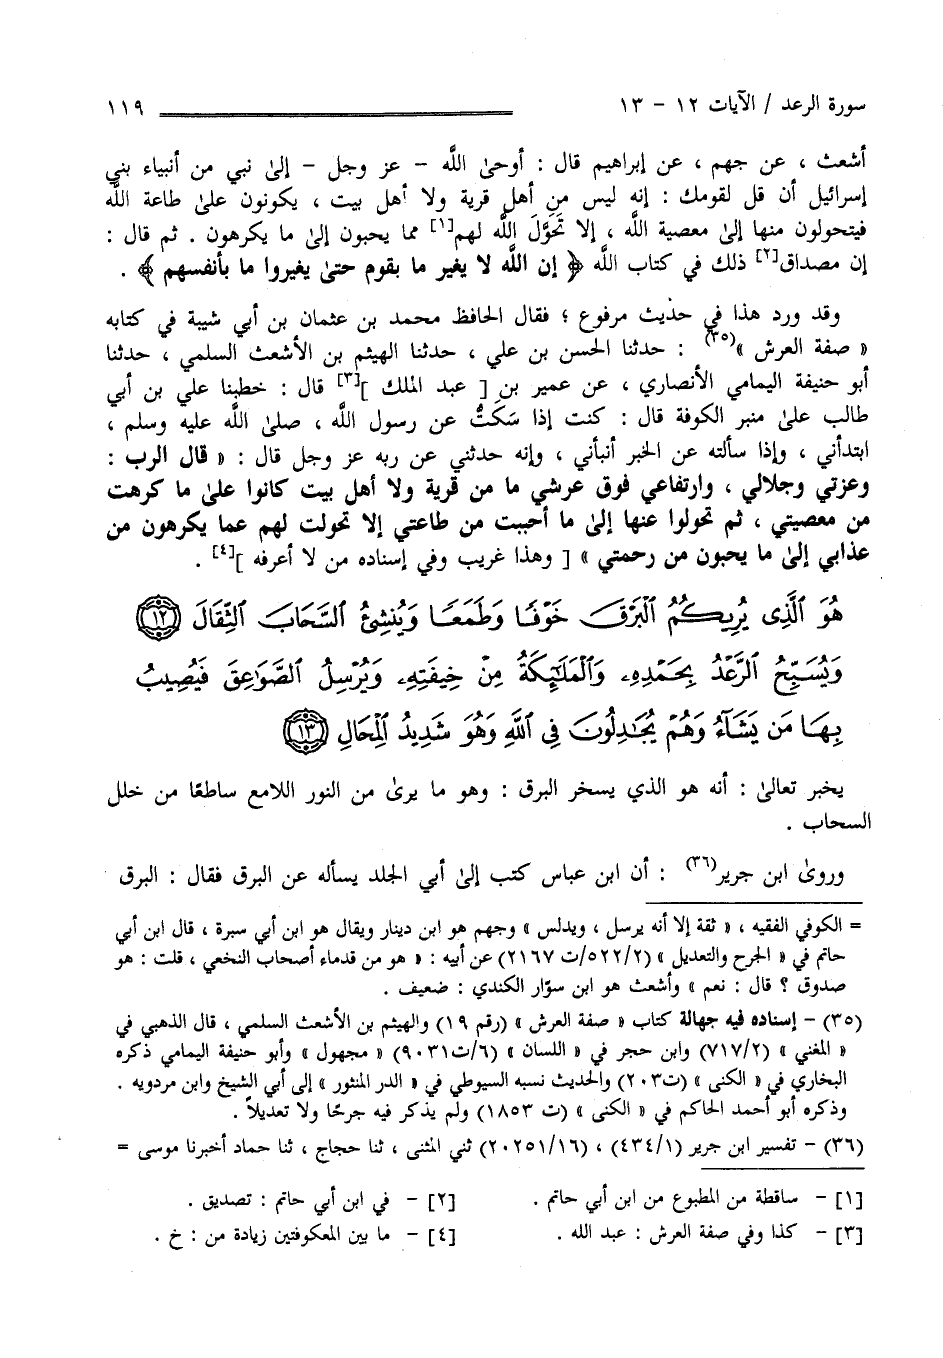 سورة الرعد / الآيات ١٢ - ١٣ ١١٩
أشعث ، عن جهم ، عن إبراهيم قال : أوحىٰ اللَّه - عز وجل - إلىٰ نبي من أنبياء بني
إسرائيل أن قل لقومك : إنه ليس من أهل قرية ولا أهل بيت ، يكونون علىٰ طاعة اللَّه
فيتحولون منها إلىٰ معصية اللَّه ، إلا تَحَوَّلَ اللَّه لهم[١] مما يحبون إلىٰ ما يكرهون . ثم قال :
إن مصداق[٢] ذلك في كتاب اللَّه ﴿ إن اللَّه لا يغير ما بقوم حتىٰ يغيروا ما بأنفسهم ﴾ .
وقد ورد هذا في حديث مرفوع ؛ فقال الحافظ محمد بن عثمان بن أبي شيبة في كتابه
« صفة العرش »(٣٥) : حدثنا الحسن بن علي ، حدثنا الهيثم بن الأشعث السلمي ، حدثنا
أبو حنيفة اليمامي الأنصاري ، عن عمير بن [ عبد الملك ][٣] قال : خطبنا علي بن أبي
طالب علىٰ منبر الكوفة قال : كنت إذا سَكَتُّ عن رسول اللَّه ، صلىٰ اللَّه عليه وسلم ،
ابتدأني ، وإذا سألته عن الخبر أنبأني ، وإنه حدثني عن ربه عز وجل قال : « قال الرب :
وعزتي وجلالي ، وارتفاعي فوق عرشي ما من قرية ولا أهل بيت كانوا علىٰ ما كرهت
من معصيتي ، ثم تحولوا عنها إلىٰ ما أحببت من طاعتي إلا تحولت لهم عما يكرهون من
عذابي إلىٰ ما يحبون من رحمتي » [ وهذا غريب وفي إسناده من لا أعرفه ][٤] .
هُوَ ٱلَّذِى يُرِيكُمُ ٱلْبَرْقَ خَوْفًا وَطَمَعًا وَيُنشِئُ ٱلسَّحَابَ ٱلثِّقَالَ ﴿١٢﴾
وَيُسَبِّحُ ٱلرَّعْدُ بِحَمْدِهِۦ وَٱلْمَلَٰٓئِكَةُ مِنْ خِيفَتِهِۦ وَيُرْسِلُ ٱلصَّوَٰعِقَ فَيُصِيبُ
بِهَا مَن يَشَآءُ وَهُمْ يُجَٰدِلُونَ فِى ٱللَّهِ وَهُوَ شَدِيدُ ٱلْمِحَالِ ﴿١٣﴾
يخبر تعالىٰ : أنه هو الذي يسخر البرق : وهو ما يرىٰ من النور اللامع ساطعًا من خلل
السحاب .
وروىٰ ابن جرير(٣٦) : أن ابن عباس كتب إلىٰ أبي الجلد يسأله عن البرق فقال : البرق
= الكوفي الفقيه ، « ثقة إلا أنه يرسل ، ويدلس » وجهم هو ابن دينار ويقال هو ابن أبي سبرة ، قال ابن أبي
حاتم في « الجرح والتعديل » (٥٢٢/٢/ت ٢١٦٧) عن أبيه : « هو من قدماء أصحاب النخعي ، قلت : هو
صدوق ؟ قال : نعم » وأشعث هو ابن سوّار الكندي : ضعيف .
(٣٥) - إسناده فيه جهالة كتاب « صفة العرش » (رقم ١٩) والهيثم بن الأشعث السلمي ، قال الذهبي في
« المغني » (٧١٧/٢) وابن حجر في « اللسان » (٦/ت٩٠٣١) « مجهول » وأبو حنيفة اليمامي ذكره
البخاري في « الكنى » (ت٢٠٣) والحديث نسبه السيوطي في « الدر المنثور » إلى أبي الشيخ وابن مردويه .
وذكره أبو أحمد الحاكم في « الكنى » (ت ١٨٥٣) ولم يذكر فيه جرحًا ولا تعديلاً .
(٣٦) - تفسير ابن جرير (٤٣٤/١) ، (٢٠٢٥١/١٦) ثني المثنى ، ثنا حجاج ، ثنا حماد أخبرنا موسى =
[١] - ساقطة من المطبوع من ابن أبي حاتم . [٢] - في ابن أبي حاتم : تصديق .
[٣] - كذا وفي صفة العرش : عبد الله . [٤] - ما بين المعكوفتين زيادة من : خ .